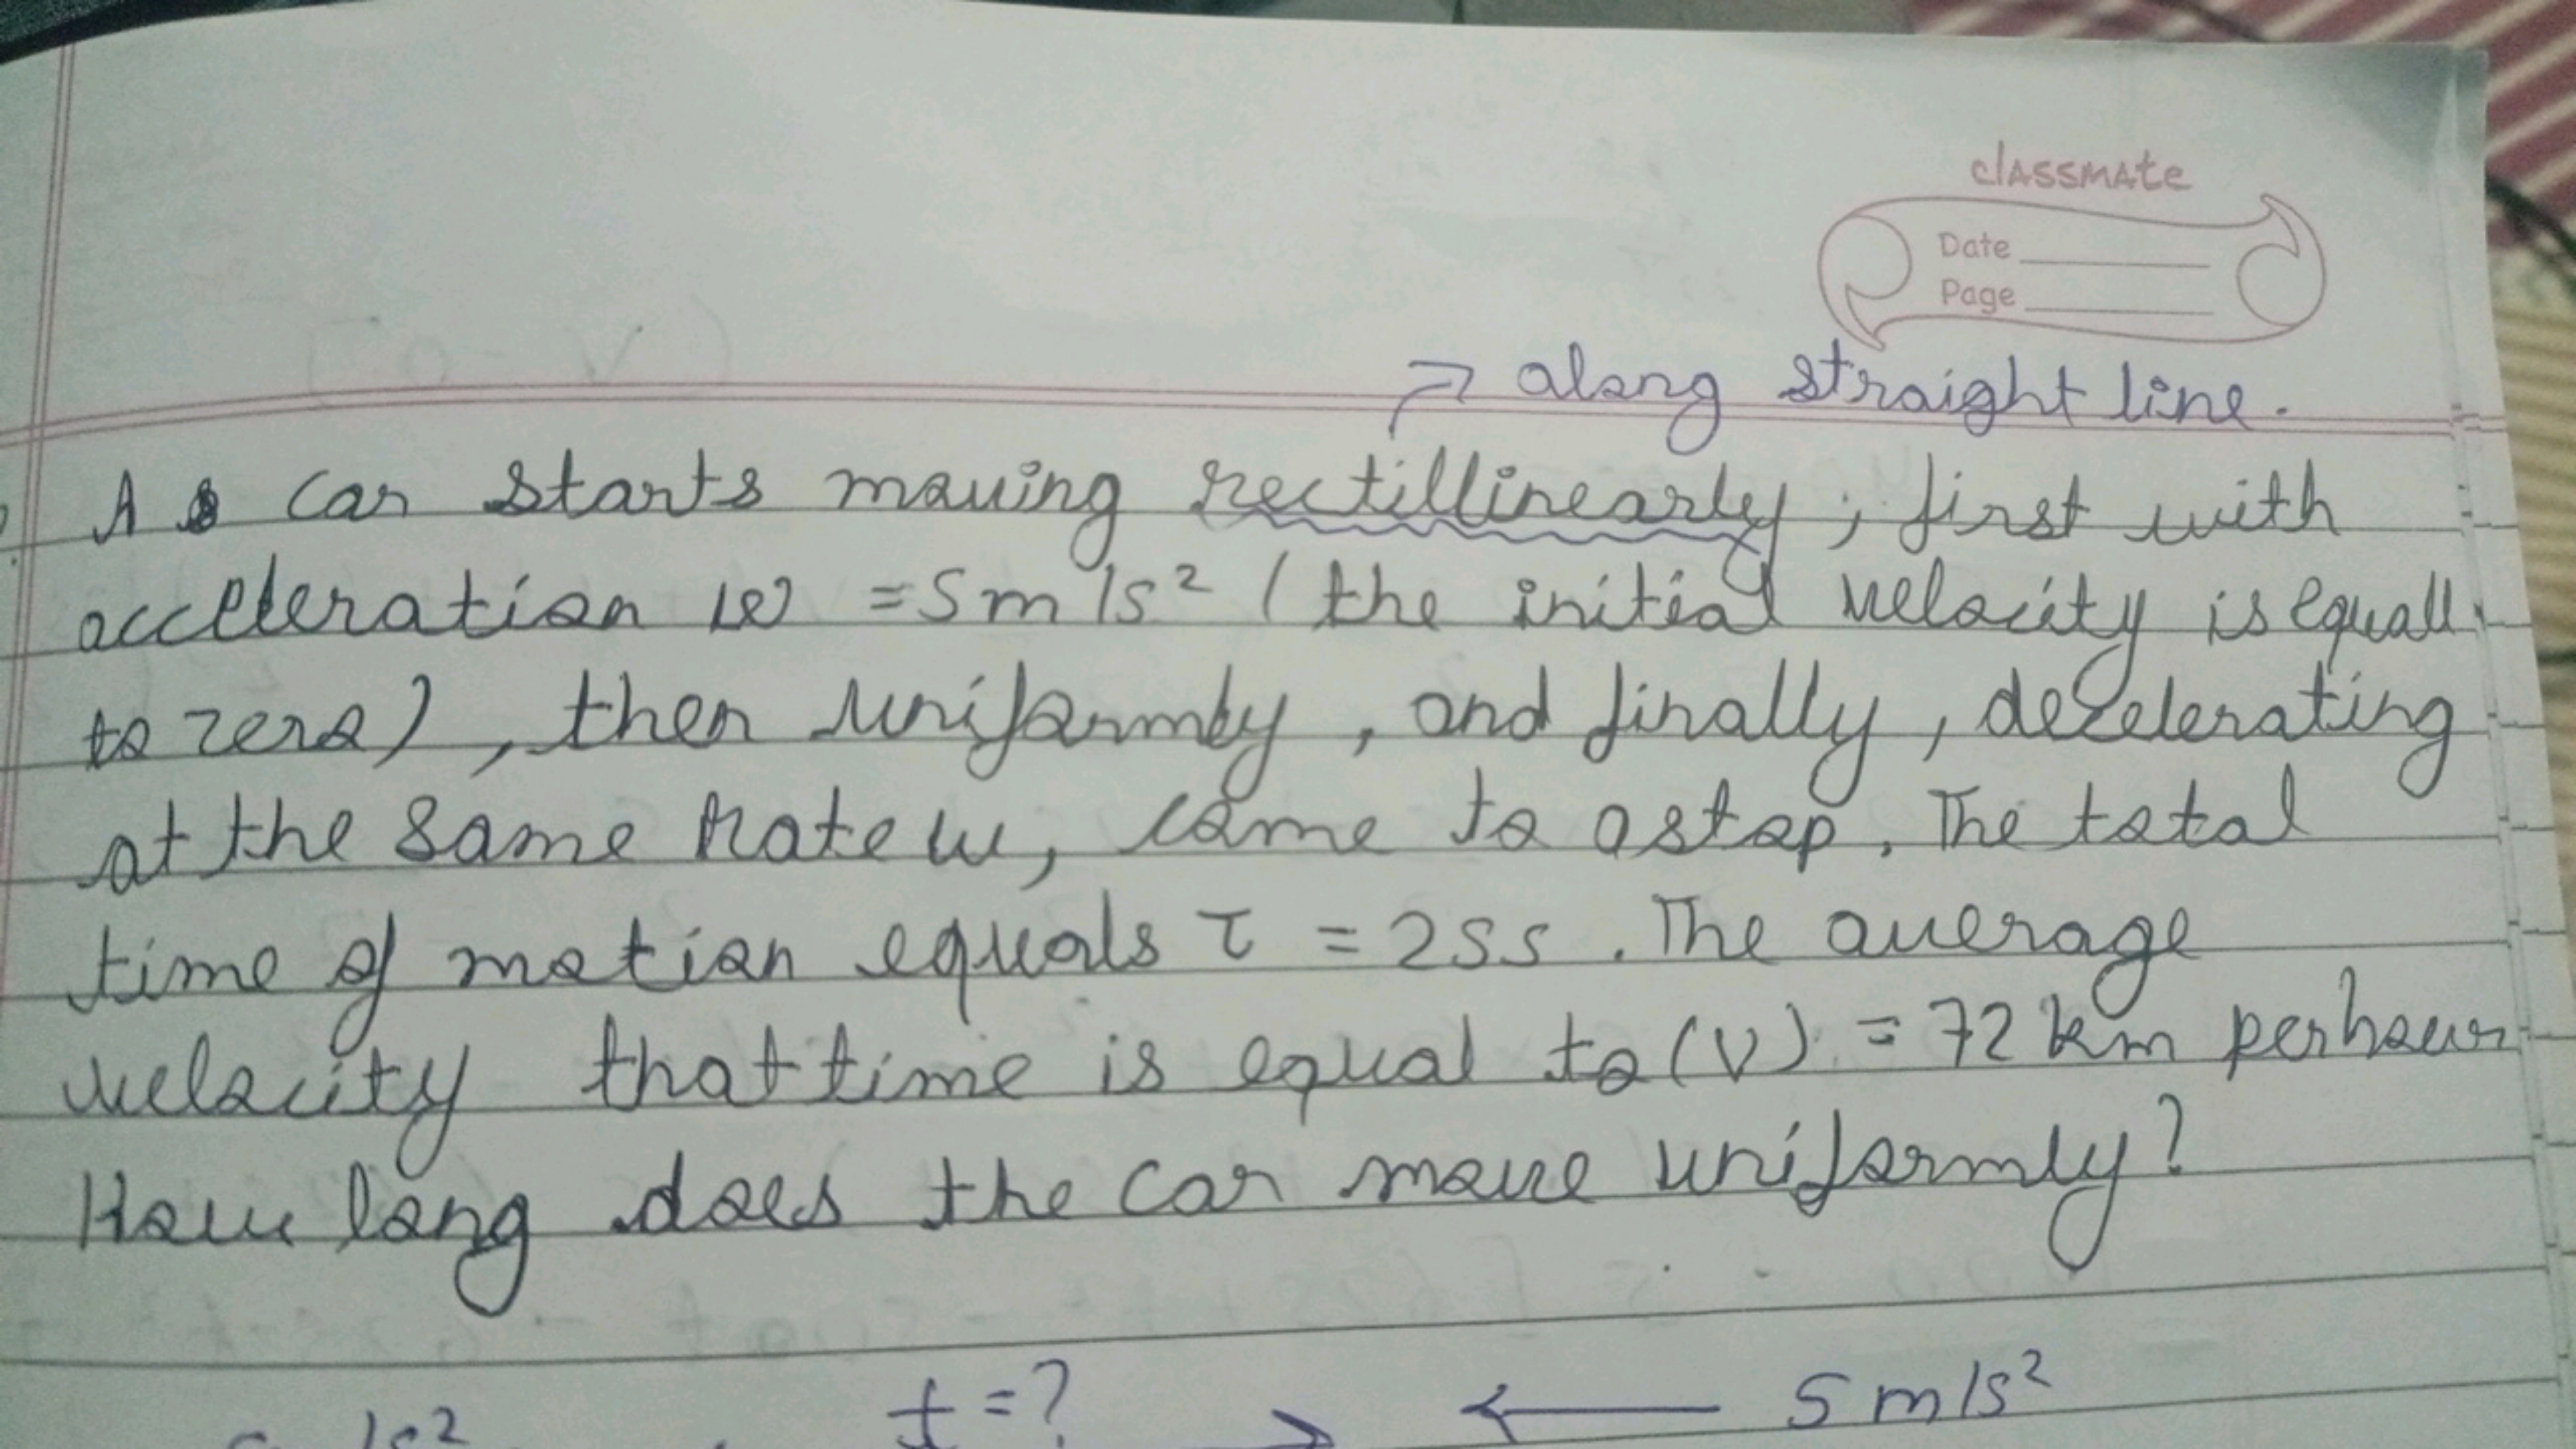 classmate
Date
Page
→ along straight line.
A car starts moving rectillinearly, first with
acceleration w = 5 m/s² (the initial velocity is equall
to zero), then uniformly, and finally, decelerating
at the same rate w, come to a stop. The total
time of motion equals τ = 25s. The average
velocity that time is equal to (V) = 72 km per hour
How long does the car move uniformly?
t = ? ← 5 m/s²